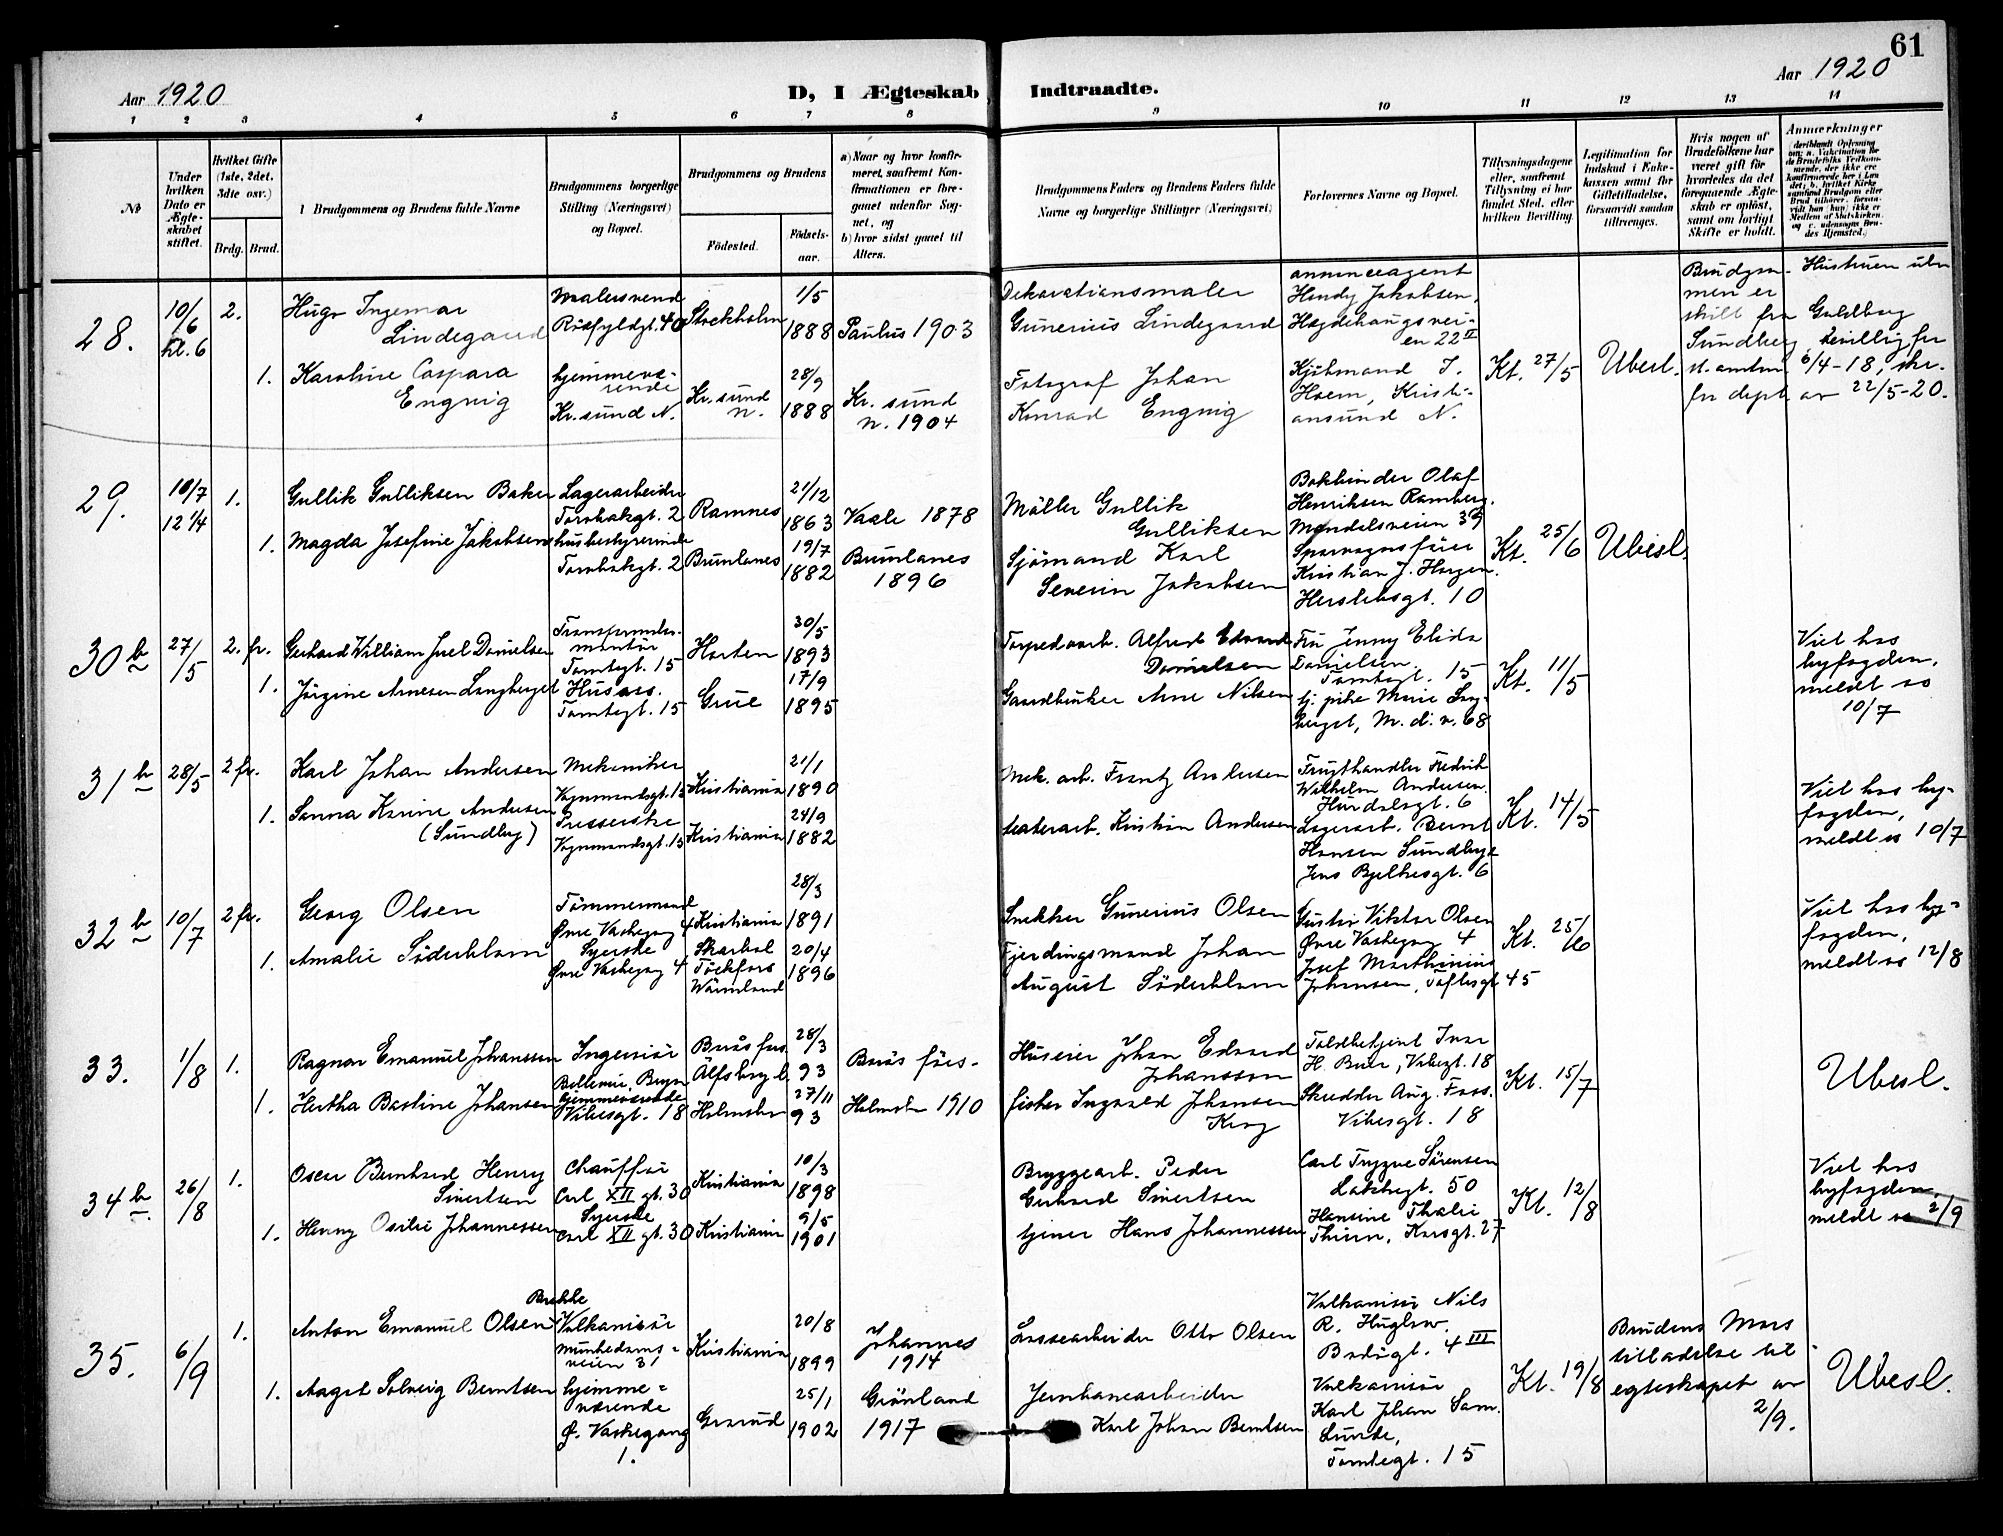 61
Aar 1920
D, I Ægteskab Indtraadte.
Aar 1920
1 2 3 4 5 6 7 8 9 10 11 12 13 14
№
Under hvilken Dato er Ægteskabet stiftet.
Hvilket Gifte (1ste, 2det, 3dte osv.)
Brdg. Brud.
1 Brudgommens og Brudens fulde Navne
Brudgommens borgerlige Stilling (Næringsvei) og Bopæl.
Brudgommens og Brudens
Fødested.
Fødselsaar.
a) Naar og hvor konfirmeret, saafremt Konfirmationen er foregaaet udenfor Sognet, og
b) hvor sidst gaaet til Alters.
Brudgommens Faders og Brudens Faders fulde Navne og borgerlige Stillinger (Næringsvei)
Forlovernes Navne og Bopæl.
Tillysningsdagene eller, saafremt Tillysning ei har fundet Sted, efter hvilken Bevilling.
Legitimation for Indskud i Enkekassen samt for Giftetilladelse, forsaavidt saadan tiltrænges.
Hvis nogen af Brudefolkene har været gift før hvorledes da det foregaaende Ægteskab er opløst, samt om lovligt Skifte er holdt.
Anmærkninger
28.
10/6
kl. 6
2.
Hugo Ingemar
Lindegaard
Malersvend
Stockholm
1/5
1888
Paulus 1903
Dekorationsmaler
Gunerius Lindegaard
annonceagent
Jakobsen,
Hægdehaugsvei-
en 22 II
1.
Karoline Caspara
Engvig
hjemmevæ-
rende
Kr.sund N.
Kr.sund
n.
28/9
1888
Kr. sund
n. 1904
Fotograf Johan
Konrad Engvig
Kjøbmand I.
Hoem, Kristi-
ansund N.
Kt. 27/5
Ubesl.
Brudgom-
men er
skilt fra
Sundberg, bevilling fra
st. amtm. 6/4-18, skr.
fra dept. av 22/5-20.
29.
10/7
12 1/4
1.
Gullik Gulliksen Baker
Lagerarbeider
Tornbakgt. 2
Ramnes
21/12
1863
Vaale 1878
Møller Gullik
Gulliksen
Bokbinder Olaf
Henriksen Ramberg.
39
1.
Magda Josefine Jakobsen
husbestyrerinde
Tornbakgt. 2
Brunlanes
19/7
1882
Brunlanes
1896
Sjømand Karl
Severin Jakobsen
Sporvognsfører
Kristian J. Haugen.
Herslebsgt. 10
Kt. 25/6
Ubesl.
30 b
27/5
2. fr.
Gerhard William Juel Danielsen
Transformator-
montør
Tomtegt. 15
Horten
30/5
1893
Torpedoarb. Alfred Edvard
Danielsen
Fru Jenny Elida
Danielsen.
Tomtegt. 15
1.
Jørgine Arnesen Langberget
Husass.
Tomtegt. 15
Grue
17/9
1895
Gaardbruker Arne Nilsen
tj. pike Marie Lang-
berget, M. d. v. 68
Kt. 11/5
Viet hos
byfogden,
meldt os
10/7
31 b
28/5
2 fr.
Karl Johan Andersen
Mekaniker
Vognmandsgt. 15
Kristiania
21/1
1890
Mek. arb. Frantz Andersen
Frugthandler Fredrik
Wilhelm Andersen.
Hurdalsgt. 6
1.
Sanna Karine Andersen
(Sundby)
Presserske
Vognmandsgt. 15
Kristiania
24/9
1882
teaterarb. Kristian Andersen
Lagerarb. Bernt
Hansen Sundbye
Jens Bjelkesgt. 6
Kt. 14/5
Viet hos by-
fogden,
meldt os 10/7
32 b
10/7
2 fr.
Georg Olsen
Tømmermand
Øvre Vaskegang 4
Kristiania
28/3
1891
Snekker Gunerius Olsen
Gustav Viktor Olsen
Øvre Vaskegang 4
1.
Amalie Söderblom
Syerske
Øvre Vaskegang 4
Töckfors
Wärmland
20/4
1896
Fjerdingsmand Johan
August Söderblom
Josef Marthinius
Johansen, Toftesgt 45
Kt. 25/6
Viet hos by-
fogden,
meldt os 12/8
33.
1/8
1.
Ragnar Emanuel Johansson
Ingeniør
Bellevue, Bryn
28/3
93
Huseier Johan Edvard
Johansson
Toldbetjent Ivar
H. Buer, Vibesgt. 18
1.
Hertha Bastine Johansen
hjemmeværende
Vibesgt. 18
Holmsbo
27/11
93
Holmsbo 1910
fisker Ingvald Johansen
Krog
Skrædder Aug. Foss.
Vibesgt. 18
Kt. 15/7
Ubesl.
34 b
26/8
1.
Oscar Bernhard Henry
Sivertsen
Chauffør
Carl XII gt. 30
Kristiania
10/3
1898
Bryggearb. Peder
Gerhard Sivertsen
Carl Trygve Sørensen
Lakkegt. 50
1.
Henny Otilie Johannessen
Syerske
Carl XII gt. 30
Kristiania
9/5
1901
tjener Hans Johannessen
Hansine Thalie
Korsgt. 27
Kt. 12/8
Viet hos
byfogden,
meldt os 2/9
35.
6/9
1.
Brekke
Anton Emanuel Olsen
Vulkanisør
Munkedams-
veien 31
Kristiania
20/8
1899
Johannes
1914
Lossearbeider Otto Olsen
Vulkanisør Nils
R. Huglow.
Bodøgt. 4 III
1.
Aagot Solveig Berntsen
hjemme-
værende
Ø. Vaskegang
1.
Grorud
25/1
1902
Grønland
1917
Jernbanearbeider
Karl Johan Berntsen
Vulkanisør
Karl Johan Sam.
Lunde,
Tomtegt. 15
Kt. 19/8
Brudens Mors
tilladelse til
egteskapet av
2/9.
Ubesl.